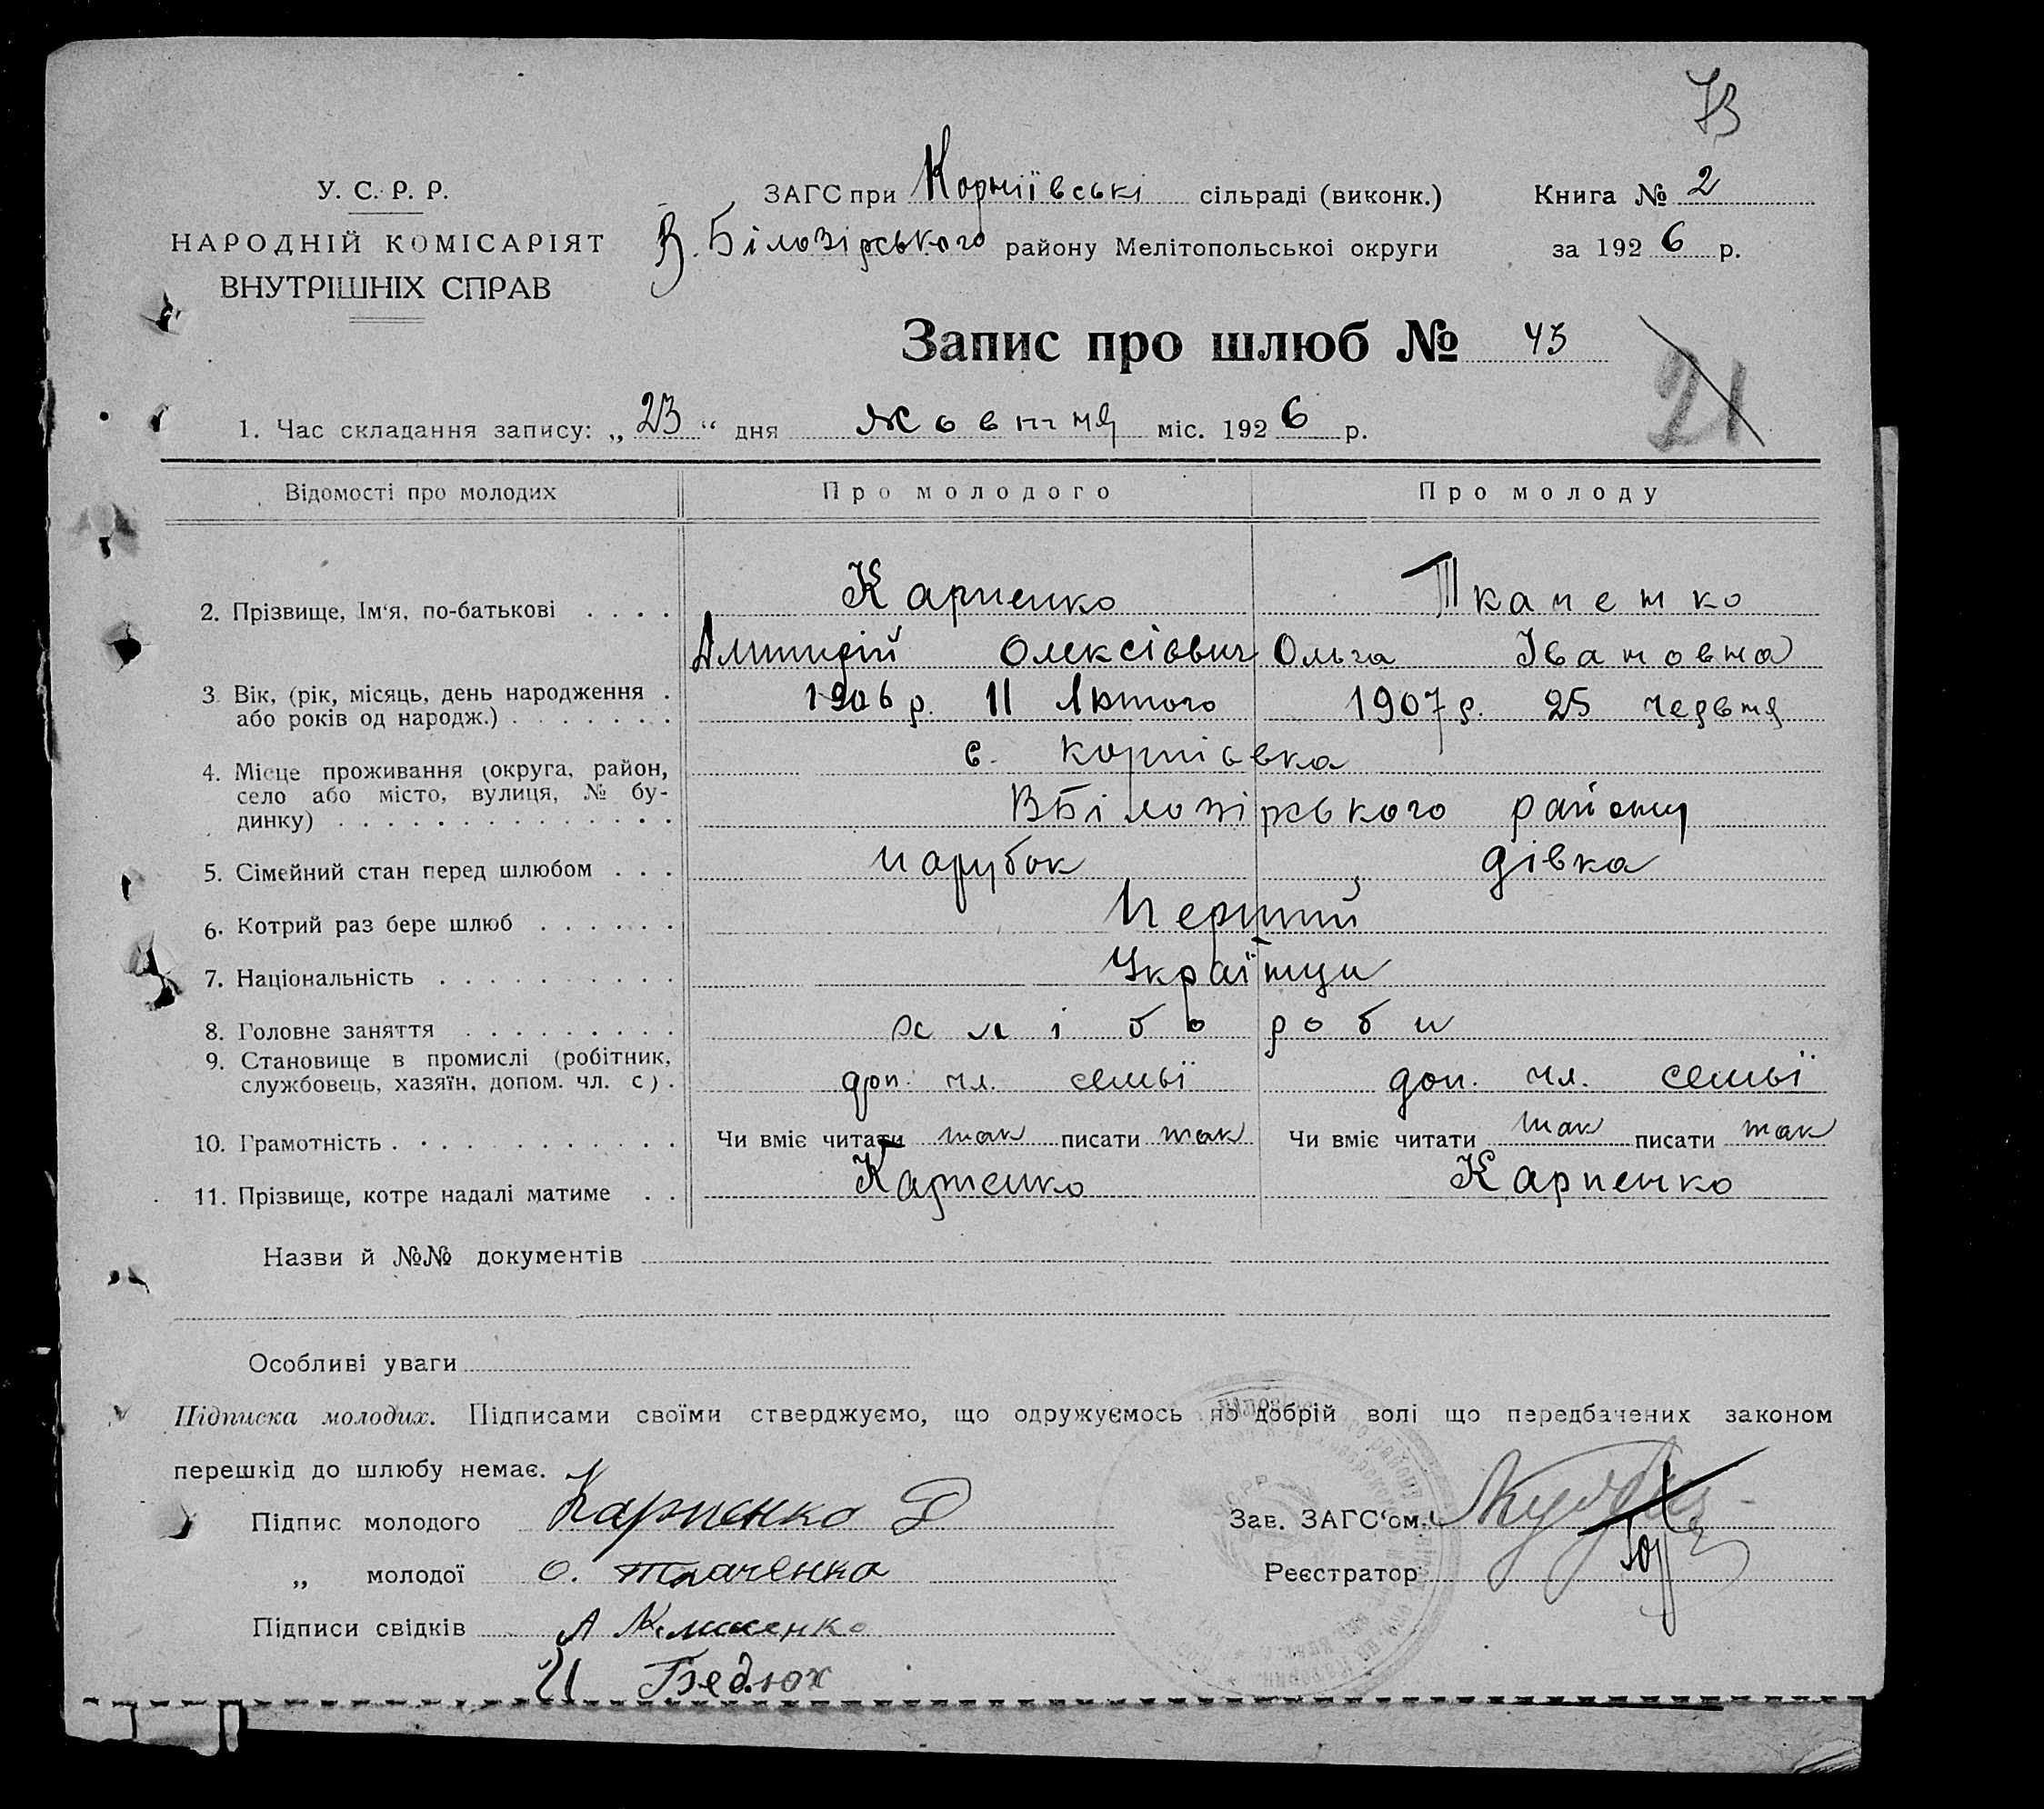 73
У. С. Р. Р.
ЗАГС при Корніївські сільраді (виконк.)
Книга № 2
НАРОДНІЙ КОМІСАРІЯТ
В. Білозірського району Мелітопольської округи
за 1926 р.
ВНУТРІШНІХ СПРАВ
Запис про шлюб № 43
21
1. Час складання запису: „23“ дня жовтня міс. 1926 р.
Відомості про молодих
Про молодого
Про молоду
2. Прізвище, Ім'я, по-батькові
Карпенко
Ткаченко
Дмитрій Олексієвич
Ольга Івановна
3. Вік, (рік, місяць, день народження
або років од народж.)
1906 р. 11 Лютого
1907 р. 25 червня
4. Місце проживання (округа, район,
село або місто, вулиця, № бу-
динку)
с. Корнієвка
ВБілозірського району
5. Сімейний стан перед шлюбом
парубок
дівка
6. Котрий раз бере шлюб
Перший
7. Національність
Українци
8. Головне заняття
хлібороби
9. Становище в промислі (робітник,
службовець, хазяїн, допом. чл. с).
доп. чл. семьї
доп. чл. семьї
10. Грамотність
Чи вміє читати так писати так
Чи вміє читати так писати так
11. Прізвище, котре надалі матиме
Карпенко
Карпенко
Назви й №№ документів
Особливі уваги
Підписка молодих. Підписами своїми стверджуємо, що одружуємось по добрій волі що передбачених законом
перешкід до шлюбу немає.
Підпис молодого Карпенко Д
Зав. ЗАГС'ом
„ молодої О. Ткаченко
Реєстратор
Підписи свідків А Клименко
И Бедлюх